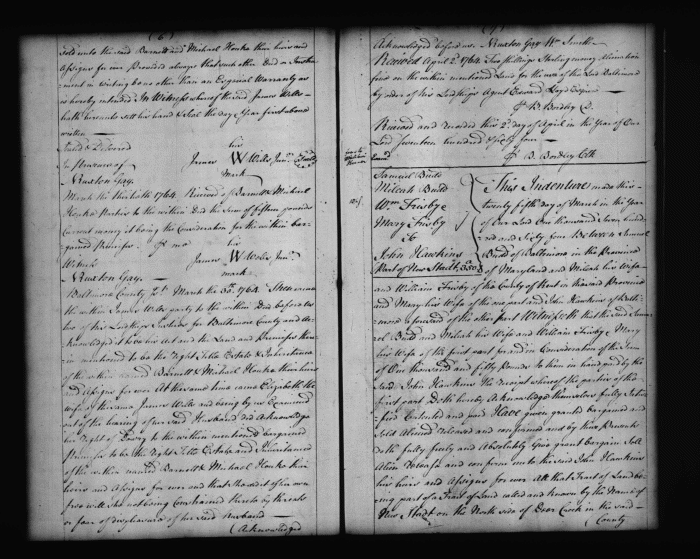 (6)
sold unto the said Barnett and Michael Houke their heirs and
Assigns for ever Provided always that such other Deed or Instru=
ment in Writing be no other than an Original Warranty as
is hereby intended In Witness whereof the said James Wells
hath hereunto sett his hand & Seal the day & Year first above
written
Sealed & Delivered
In Presence of
Ruxton Gay.
his
James W Wells Junr. Seald
mark
March the thirtieth 1764 Received of Barnett & Michael
Houke Parties to the within Deed the Sum of fifteen pounds
Current money it being the Consideration for the within bar-
gained Premises. P me
Witness
Ruxton Gay.
his
James W Wells Junr.
mark
Baltimore County Sct. March the 30th. 1764. Then came
the within James Wells party to the within Deed before us
two of his Lordships Justices for Baltimore County and Ac=
knowledged it to be his Act and the Land and Premises there
in mentioned to be the Right Title Estate & Inheritance
of the within named Barnett & Michael Houke their heirs
and Assigns for ever At the same time came Elizabeth the
wife of the same James Wells and being by us Examined
out of the hearing of her said Husband did Acknowledge
her Right of Dowry to the within mentioned bargained
Premises to be the Right Title Estate and Inheritance
of the within named Barnett & Michael Houke their
heirs and Assigns for ever and that she did it of her own
free will She not being Constrained thereto by threats
or fear of displeasure of her said Husband
(Acknowledged
Acknowledged before us. Ruxton Gay Wm. Smith
Received April 2d. 1764 Two Shillings Sterling money Alienation
fine on the within mentioned Land for the use of the Lord Baltimore
by order of his Lordships Agent Edward Lloyd Esquire
P B. Bordley C
Received and recorded this 2d. day of April in the Year of Our
Lord Seventeen hundred & Sixty four
P B. Bordley Clk
Examd
Samuel Budd
Mileah Budd
Wm. Frisby &
Mary Frisby
to
John Hawkins
Part of New Stadt
This Indenture made this
twenty fifth day of March in the Year
of Our Lord One thousand Seven hund=
red and Sixty four Between Samuel
Budd of Baltimore in the Province
of Maryland and Mileah his Wife
and William Frisby of the County of Kent in the said Province
and Mary his Wife of the one part and John Hawkins of Balti-
more aforesaid of the other part Witnesseth that the said Samu=
el Budd and Mileah his Wife and William Frisby & Mary
his Wife of the first part for and in Consideration of the Sum
of One thousand and fifty Pounds to them in hand paid by the
said John Hawkins the receipt whereof the parties of the
first part Doth hereby Acknowledge themselves fully Satis=
fied Contented and paid Have given granted bargained and
Sold Aliened Released and confirmed and by these Presents
doth fully freely and Absolutely Give grant bargain Sell
Alien Release and confirm unto the said John Hawkins
his heirs and Assigns for ever All that Tract of Land be=
ing part of a Tract of Land called and known by the Name of
New Stadt on the North side of Deer Creek in the said
(County